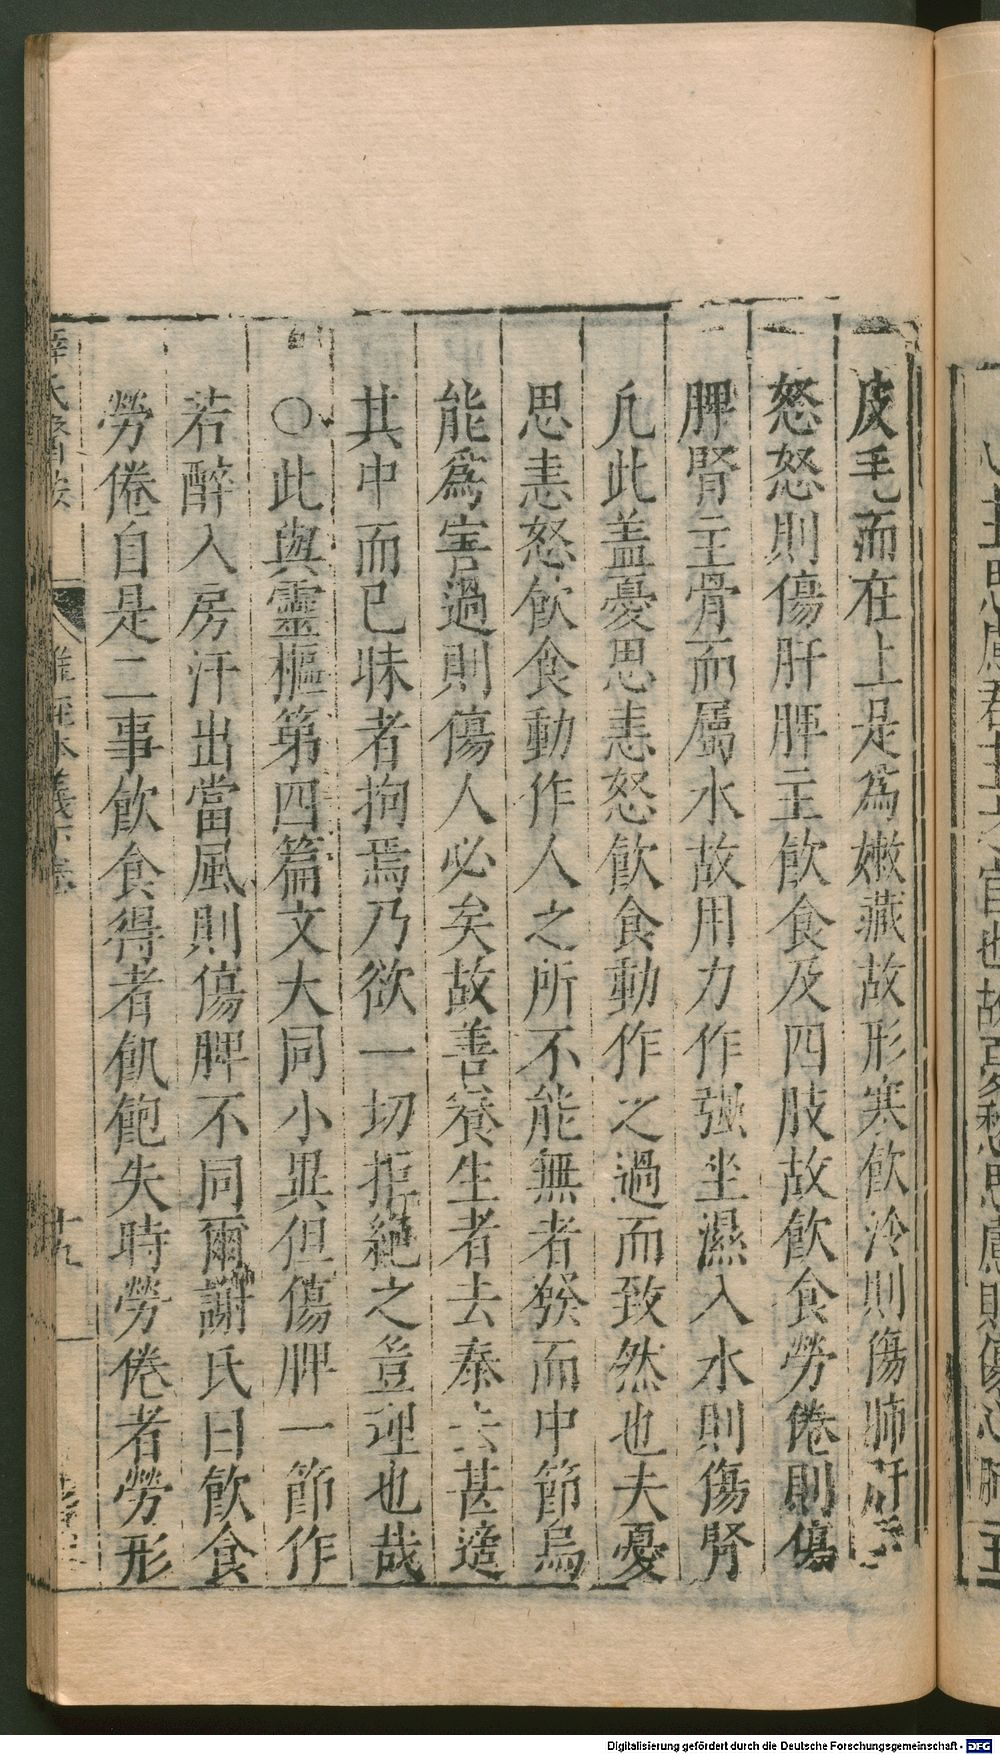 皮毛而在上是爲嫩藏故形寒飲冷則傷肺肝主
怒怒則傷肝脾主飲食及四肢故飲食勞倦則傷
脾腎主骨而屬水故用力作强坐濕入水則傷腎
凡此盖憂思恚怒飲食動作之過而致然也夫憂
思恚怒飲食動作人之所不能無者發而中節烏
能爲害過則傷人必矣故善養生者去泰去甚適
其中而已昧者拘焉乃欲一切拒絕之豈理也哉
○此與靈樞第四篇文大同小異但傷脾一節作
若醉入房汗出當風則傷脾不同爾謝氏曰飲食
勞倦自是二事飲食得者飢飽失時勞倦者勞形
薛氏醫按
難經本義下卷
十九
Digitalisierung gefördert durch die Deutsche Forschungsgemeinschaft - DFG